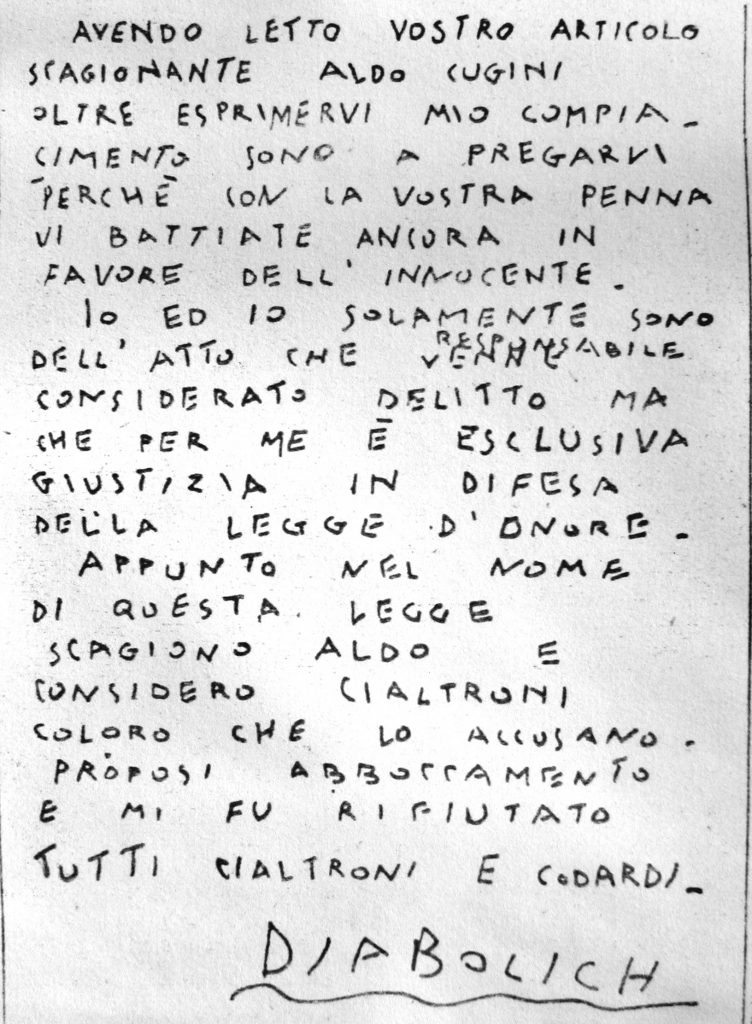 AVENDO LETTO VOSTRO ARTICOLO
SCAGIONANTE ALDO CUGINI
OLTRE ESPRIMERVI MIO COMPIA_
CIMENTO SONO A PREGARVI
PERCHÈ CON LA VOSTRA PENNA
VI BATTIATE ANCORA IN
FAVORE DELL'INNOCENTE.
IO ED IO SOLAMENTE SONO
RESPONSABILE
DELL'ATTO CHE VENNE
CONSIDERATO DELITTO MA
CHE PER ME È ESCLUSIVA
GIUSTIZIA IN DIFESA
DELLA LEGGE D'ONORE.
APPUNTO NEL NOME
DI QUESTA LEGGE
SCAGIONO ALDO E
CONSIDERO CIALTRONI
COLORO CHE LO ACCUSANO.
PROPOSI ABBOCCAMENTO
E MI FU RIFIUTATO
TUTTI CIALTRONI E CODARDI_
DIABOLICH